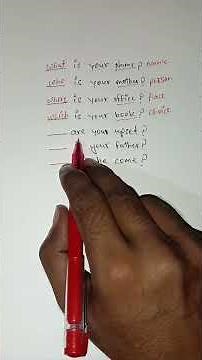 what is your name? name
who is your mother? person
where is your office? place
which is your book? choice
are your upset?
your father?
he come?